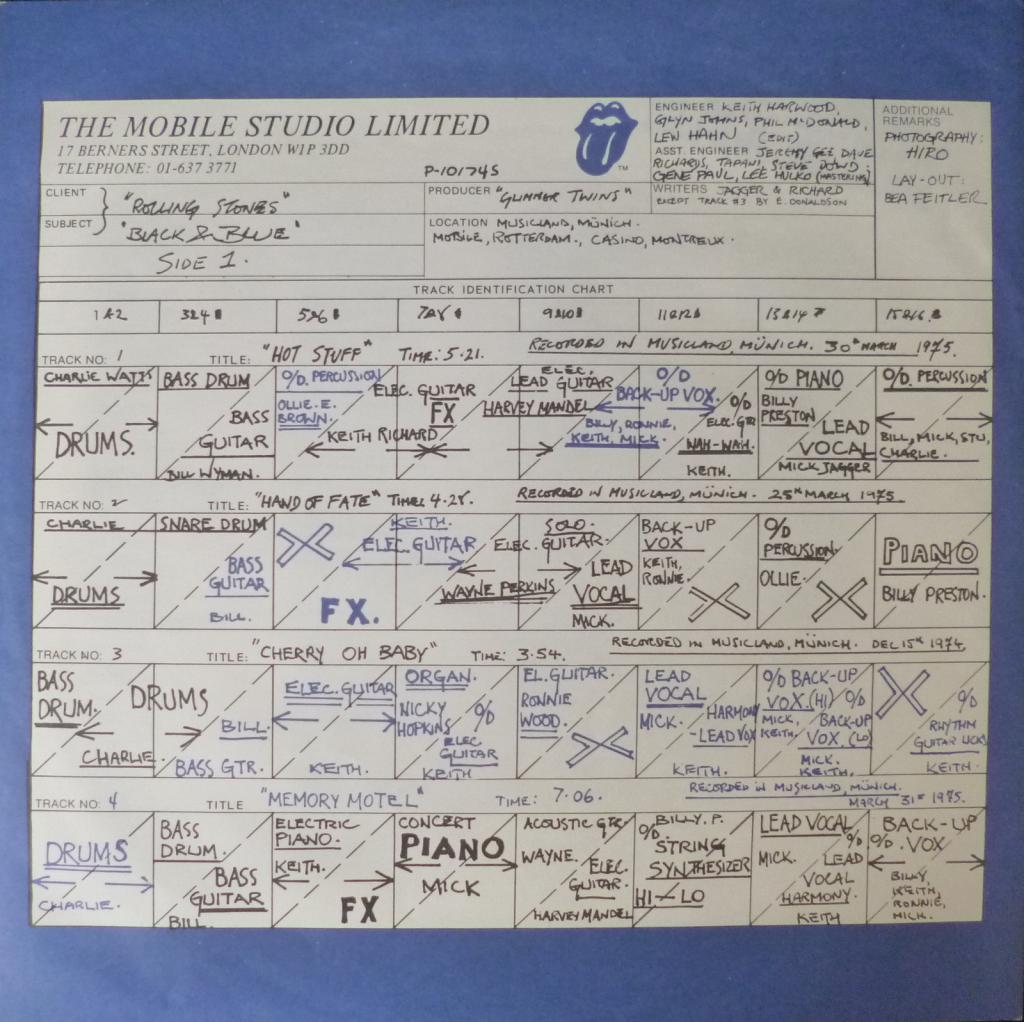 THE MOBILE STUDIO LIMITED
17 BERNERS STREET, LONDON W1P 3DD
TELEPHONE: 01-637 3771
P-10174S
TM
ENGINEER KEITH HARWOOD,
GLYN JOHNS, PHIL McDONALD,
LEW HAHN (EDIT)
ASST. ENGINEER JEREMY GEE DAVE
RICHARDS, TAPANI, STEVE DOWD
GENE PAUL, LEE HULKO (MASTERING)
ADDITIONAL
REMARKS
PHOTOGRAPHY:
HIRO
LAY-OUT:
BEA FEITLER
CLIENT
"ROLLING STONES"
SUBJECT
"BLACK & BLUE"
SIDE 1.
PRODUCER "GLIMMER TWINS"
WRITERS JAGGER & RICHARD
EXCEPT TRACK #3 BY E. DONALDSON
LOCATION MUSICLAND, MÜNICH.
MOBILE, ROTTERDAM., CASINO, MONTREUX.
TRACK IDENTIFICATION CHART
1&2 3&4 5&6 7&8 9&10 11&12 13&14 15&16
TRACK NO: 1 TITLE: "HOT STUFF" TIME: 5·21. RECORDED IN MUSICLAND, MÜNICH. 30th MARCH 1975.
CHARLIE WATTS
DRUMS.
BASS DRUM
BASS
GUITAR
BILL WYMAN.
O/D. PERCUSSION
OLLIE. E.
BROWN.
ELEC. GUITAR
FX
KEITH RICHARD
ELEC.
LEAD GUITAR
HARVEY MANDEL
O/D
BACK-UP VOX.
BILLY, RONNIE,
KEITH, MICK.
O/D
ELEC. GTR
WAH-WAH.
KEITH.
O/D PIANO
BILLY
PRESTON
LEAD
VOCAL
MICK JAGGER
O/D. PERCUSSION
BILL, MICK, STU,
CHARLIE.
TRACK NO: 2 TITLE: "HAND OF FATE" TIME: 4·28. RECORDED IN MUSICLAND, MÜNICH. 25th MARCH 1975
CHARLIE
DRUMS
SNARE DRUM
BASS
GUITAR
BILL.
FX.
KEITH.
ELEC. GUITAR
SOLO.
ELEC. GUITAR.
WAYNE PERKINS
LEAD
VOCAL
MICK.
BACK-UP
VOX
KEITH,
RONNIE.
O/D
PERCUSSION
OLLIE.
PIANO
BILLY PRESTON.
TRACK NO: 3 TITLE: "CHERRY OH BABY" TIME: 3·54. RECORDED IN MUSICLAND, MÜNICH. DEC 15th 1974
BASS
DRUM.
DRUMS
CHARLIE.
BILL.
BASS GTR.
ELEC. GUITAR
KEITH.
ORGAN.
NICKY
HOPKINS
O/D
ELEC
GUITAR
KEITH
EL. GUITAR.
RONNIE
WOOD.
LEAD
VOCAL
MICK.
HARMONY
-LEAD VOX
KEITH.
O/D BACK-UP
VOX. (HI)
MICK,
KEITH.
O/D
BACK-UP
VOX. (LO)
MICK.
KEITH.
O/D
RHYTHM
GUITAR LICKS
KEITH.
TRACK NO: 4 TITLE "MEMORY MOTEL" TIME: 7·06. RECORDED IN MUSICLAND, MÜNICH.
MARCH 31st 1975.
DRUMS
CHARLIE.
BASS
DRUM.
BASS
GUITAR
BILL.
ELECTRIC
PIANO.
KEITH.
FX
CONCERT
PIANO
MICK
ACOUSTIC GTR
WAYNE.
ELEC.
GUITAR.
HARVEY MANDEL
BILLY. P.
O/D
STRING
SYNTHESIZER
HI-LO
LEAD VOCAL
MICK.
O/D
LEAD
VOCAL
HARMONY.
KEITH
BACK-UP
O/D. VOX
BILLY,
KEITH,
RONNIE,
MICK.